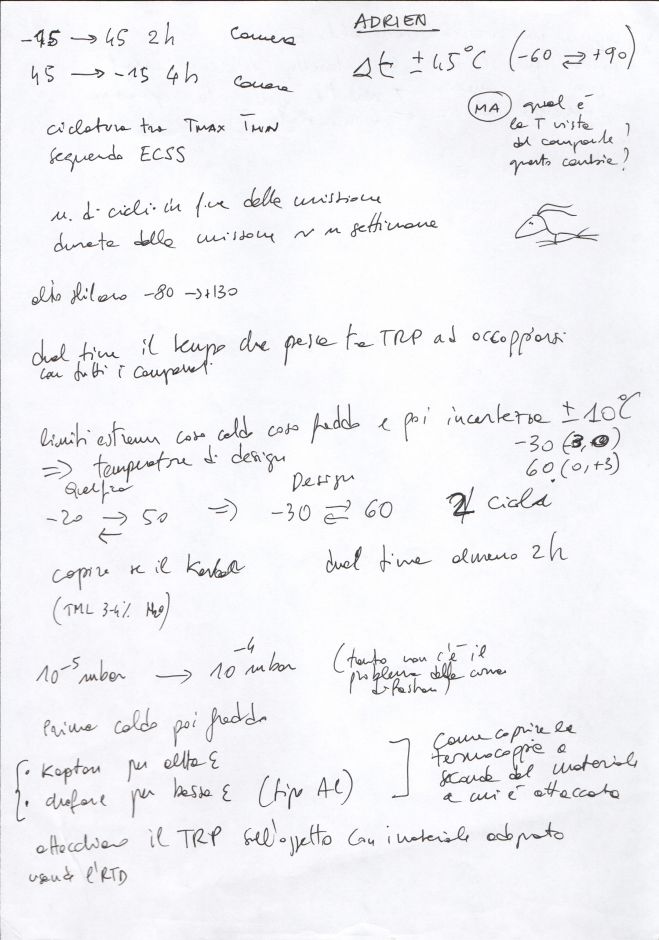 ADRIEN
-15 → 45 2h camera
45 → -15 4h camera
Δt ± 45°C (-60 ⇄ +90)
MA qual è
la T vista
dal componente?
quanto cambia?
ciclatura tra TMAX TMIN
seguendo ECSS
n. di cicli in fine della missione
durata della missione ~ n settimane
-80 → +130
dwell time il tempo che TRP ad accoppiarsi
con tutti i componenti
limiti estremi caso caldo caso freddo e poi incertezza ± 10°C
=> temperature di design
-30 (3,0)
60 (0,+3)
Design
-20 ⇄ 50 => -30 ⇄ 60
cicli
capire se il
dwell time almeno 2h
(TML 3-4% H2O)
10⁻⁵ mbar → 10⁻⁴ mbar
(tanto non c'è il
problema della
Prima caldo poi freddo
• Kapton per alta ε
• per bassa ε (tipo Al)
Come coprire le
termocoppie a
seconda del materiale
a cui è attaccata
attacchiamo il TRP sull'oggetto con materiale adeguato
usando l'RTD